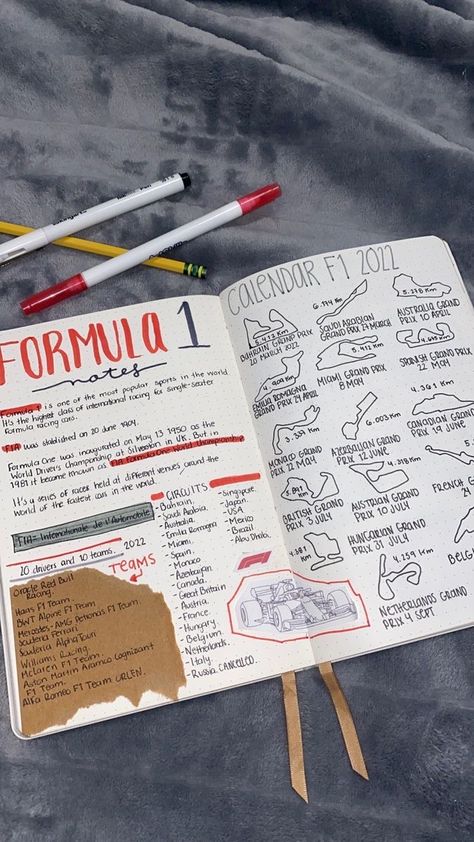 FORMULA 1
notes
Formula 1 is one of the most popular sports in the world
It's the highest class of international racing for single-seater
Formula racing cars.
FIA was stablished on 20 june 1904.
Formula One was inaugurated on May 13 1950 as the
World Drivers Championship at Silverston in UK. But in
1981 it became known as FIA Formula One World Championship
It's a series of races held at different venues around the
world of the fastest cars in the world.
FIA= Internationale de l'Automobile
20 drivers and 10 teams. 2022
TEAMS
Oracle Red Bull
Racing.
Haas F1 Team.
BWT Alpine F1 Team
Mercedes-AMG Petronas F1 Team
Scuderia Ferrari
Scuderia AlphaTauri
Williams Racing.
McLaren F1 Team.
Aston Martin Aramco Cognizant
F1 Team.
Alfa Romeo F1 Team ORLEN.
CIRCUITS
- Bahrain.
- Saudi Arabia.
- Australia.
- Emilia Romagna
- Miami.
- Spain.
- Monaco
- Azerbaijan.
- Canada.
- Great Britain
- Austria.
- France.
- Hungary.
- Belgium.
- Netherlands.
- Italy.
- Russia CANCELLED.
- Singapore.
- Japan.
- USA
- Mexico
- Brazil
- Abu Dhabi.
F1
CALENDAR F1 2022
5.412 Km
BAHRAIN GRAND PRIX
20 MARCH 2022
6.174 Km
SAUDI ARABIAN
GRAND PRIX 27 MARCH
5.278 Km
AUSTRALIA GRAND
PRIX 10 APRIL
4.909 Km
EMILIA ROMAGNA
GRAND PRIX 24 APRIL
5.412 Km
MIAMI GRAND PRIX
8 MAY
4.675 Km
SPANISH GRAND PRIX
22 MAY
3.337 Km
MONACO GRAND PRIX
29 MAY
6.003 Km
AZERBAIJAN GRAND
PRIX 12 JUNE
4.361 Km
CANADIAN GRAND
PRIX 19 JUNE
5.891 Km
BRITISH GRAND
PRIX 3 JULY
4.318 Km
AUSTRIAN GRAND
PRIX 10 JULY
FRENCH
4.381 Km
HUNGARIAN GRAND
PRIX 31 JULY
4.259 Km
NETHERLANDS GRAND
PRIX 4 SEPT.